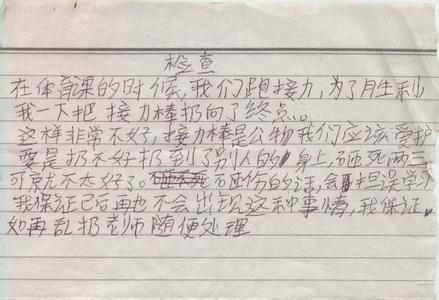 检查
在体育课的时候，我们跑接力，为了胜利
我一下把接力棒扔向了终点。
这样非常不好，接力棒是公物我们应该爱护
要是扔不好扔到了别人的身上，砸死两三
可就尤不太好了。砸伤的话，会担误学习
我保证已后再也不会出现这种事情，我保证，
如再乱扔老师随便处理